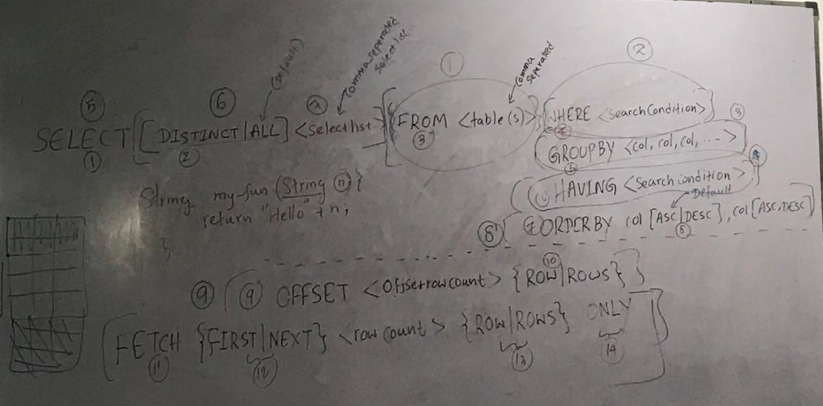 comma seperated
select list
(default)
comma
seperated
① ②
⑤ ⑥
SELECT [DISTINCT|ALL] <selectlist> [FROM <table(s)> [WHERE <searchCondition>]
① ② ③
[GROUPBY <col, col, col, ...>]
[HAVING <Searchcondition>]
Default
⑧ [ORDERBY col [ASC|DESC], col [ASC, DESC]
String my-fun (String n) {
return "Hello" + n;
}
⑩
⑨ [⑨ OFFSET <Offsetrowcount> {ROW|ROWS}]
[FETCH {FIRST|NEXT} <row count> {ROW|ROWS} ONLY]
⑪ ⑫ ⑬ ⑭